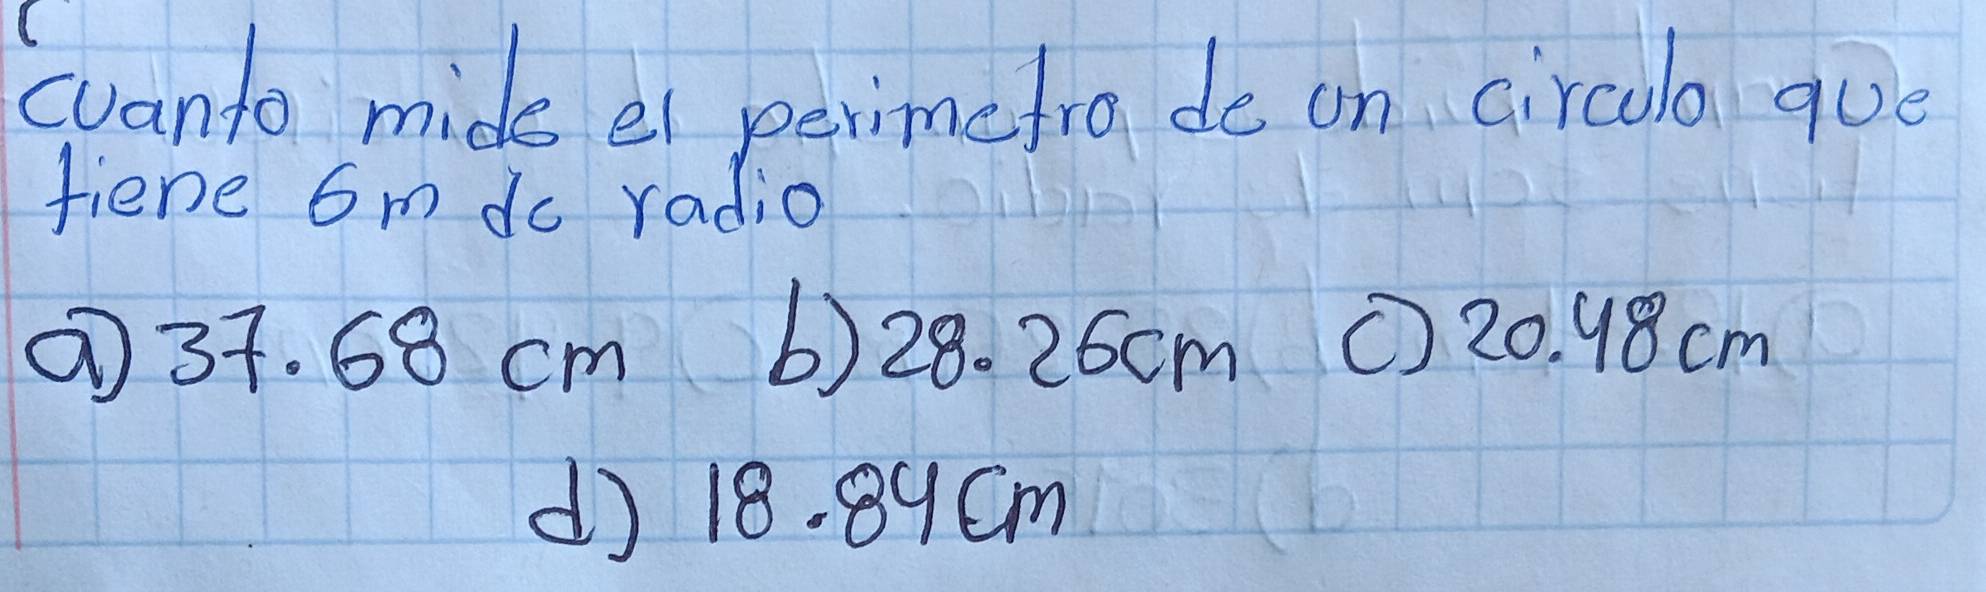 Cuanto mide el perimetro de un circulo que
tiene 6m de radio
a) 37.68 cm b) 28.26cm c) 20.48cm
d) 18.84cm